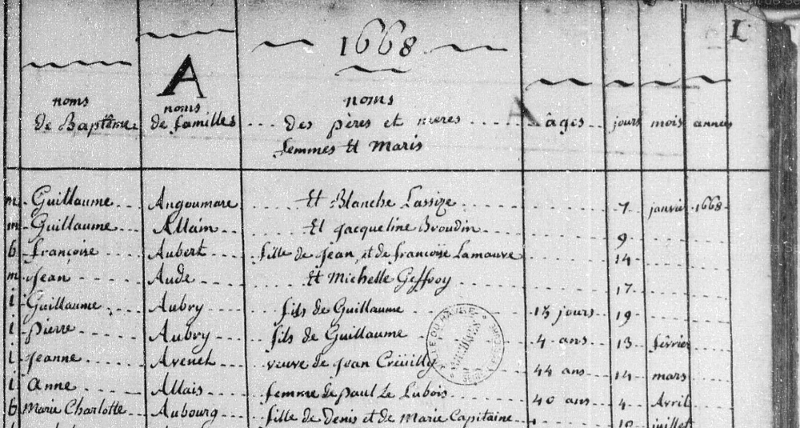 1668
L
A
noms de Baptême noms de familles noms des pères et mères femmes Et Maris âges jours mois années
m Guillaume Angoumare Et Blanche Lassize 7 janvier 1668
m Guillaume Allain Et Jacqueline Broudin 9
b françoise Aubert fille de Jean et de françoise Lamauve 14
m Jean Aude Et Michelle Geffroy 17
i Guillaume Aubry fils de Guillaume 15 jours 19
i pierre Aubry fils de Guillaume 4 ans 13 février
i Jeanne Avenel veuve de Jean 44 ans 14 mars
i Anne Allais femme de paul Le Lubois 40 ans 4 Avril
b Marie Charlotte Aubourg fille de Denis et de Marie Capitaine juillet